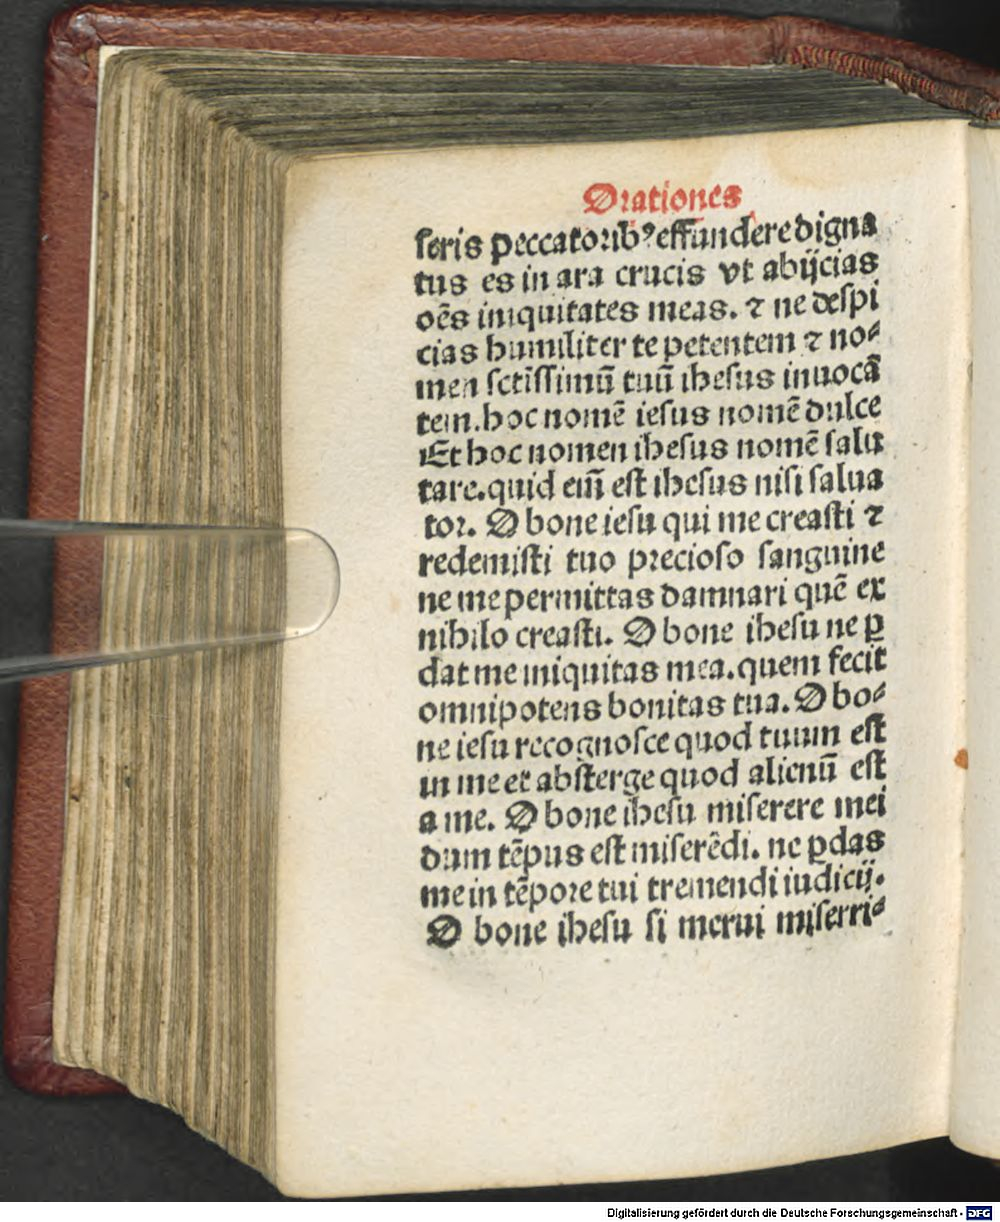 Orationes
seris peccatoribꝰ effundere digna
tus es in ara crucis vt abijcias
oēs iniquitates meas. ⁊ ne despi
cias humiliter te petentem ⁊ no⸗
men sctissimū tuū ihesus inuocā
tem. hoc nomē iesus nomē dulce
Et hoc nomen ihesus nomē salu
tare. quid eiī est ihesus nisi salua
tor. O bone iesu qui me creasti ⁊
redemisti tuo precioso sanguine
ne me permittas damnari quē ex
nihilo creasti. O bone ihesu ne ꝑ
dat me iniquitas mea. quem fecit
omnipotens bonitas tua. O bo⸗
ne iesu recognosce quod tuum est
in me et absterge quod alienū est
a me. O bone ihesu miserere mei
dum tēpus est miserēdi. ne ꝑdas
me in tēpore tui tremendi iudicij.
O bone ihesu si merui miserri⸗
Digitalisierung gefördert durch die Deutsche Forschungsgemeinschaft - DFG